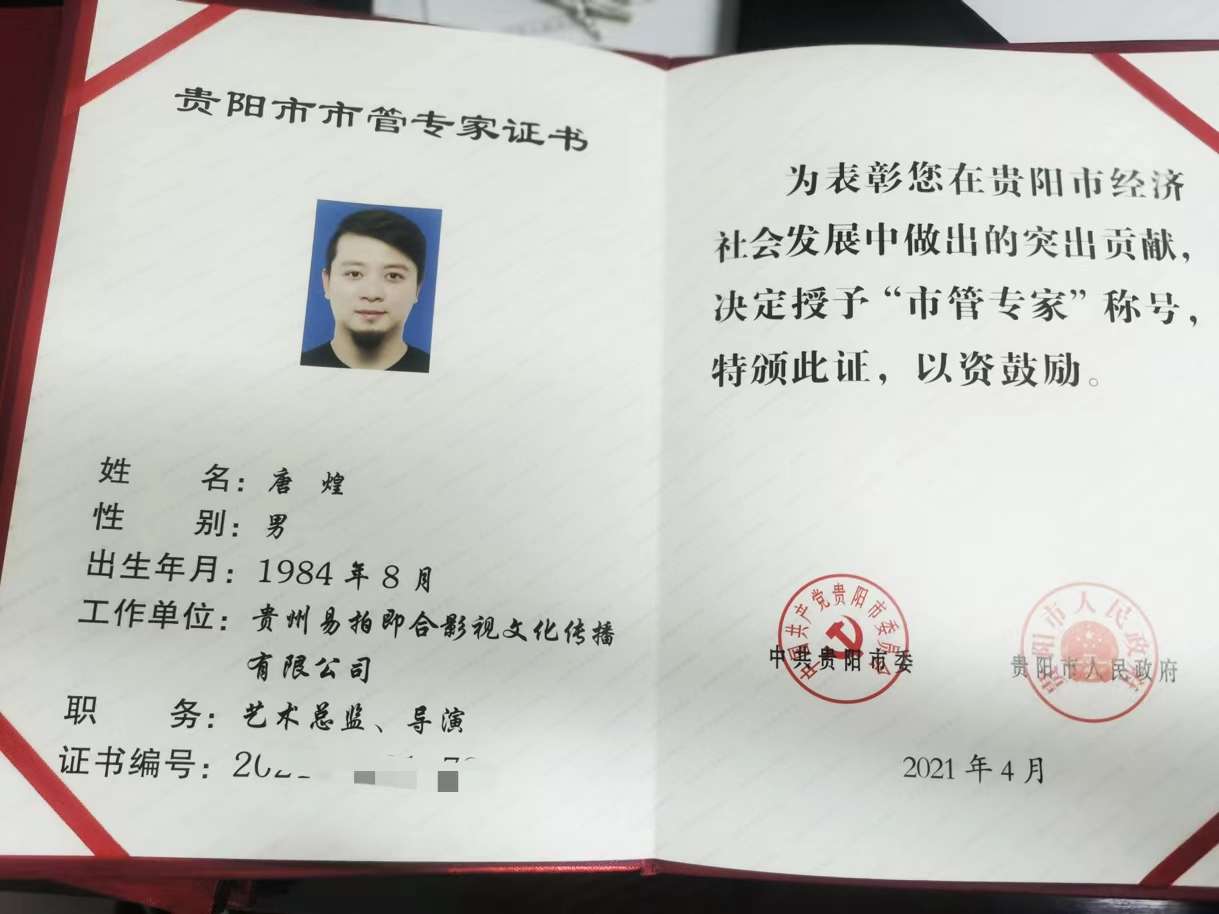 贵阳市市管专家证书
姓 名：唐 煌
性 别：男
出生年月：1984 年 8 月
工作单位：贵州易拍即合影视文化传播
有限公司
职 务：艺术总监、导演
证书编号：
为表彰您在贵阳市经济
社会发展中做出的突出贡献，
决定授予“市管专家”称号，
特颁此证，以资鼓励。
中国共产党贵阳市委员会
中共贵阳市委
贵阳市人民政府
贵阳市人民政府
2021 年 4 月